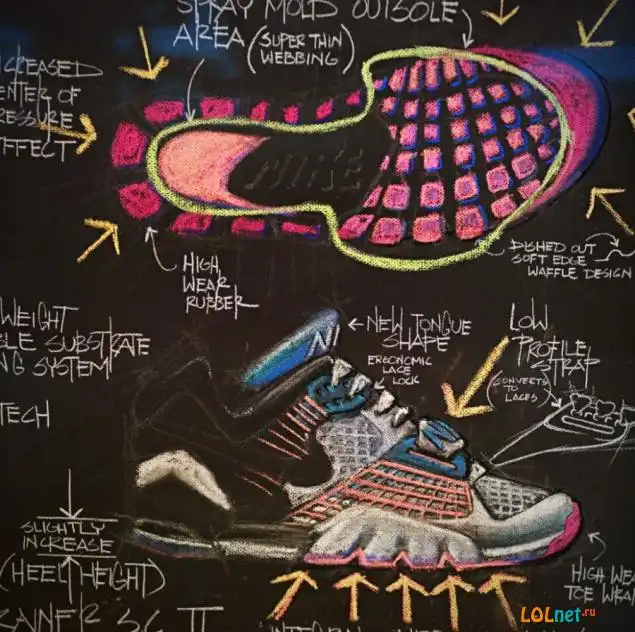 SPRAY MOLD OUTSOLE
AREA (SUPER THIN
WEBBING)
NCREASED
ENTER OF
PRESSURE
EFFECT
NIKE
HIGH
WEAR
RUBBER
DISHED OUT
SOFT EDGE
WAFFLE DESIGN
WEIGHT
BLE SUBSTRATE
NG SYSTEM
TECH
NEW TONGUE
SHAPE
ERGONOMIC
LACE
LOCK
LOW
PROFILE
STRAP
(CONVERTS
TO
LACES)
NI
SLIGHTLY
INCREASE
(HEEL HEIGHT)
RAINER SC II
HIGH WEA
TOE WRAP
LOLnet.ru